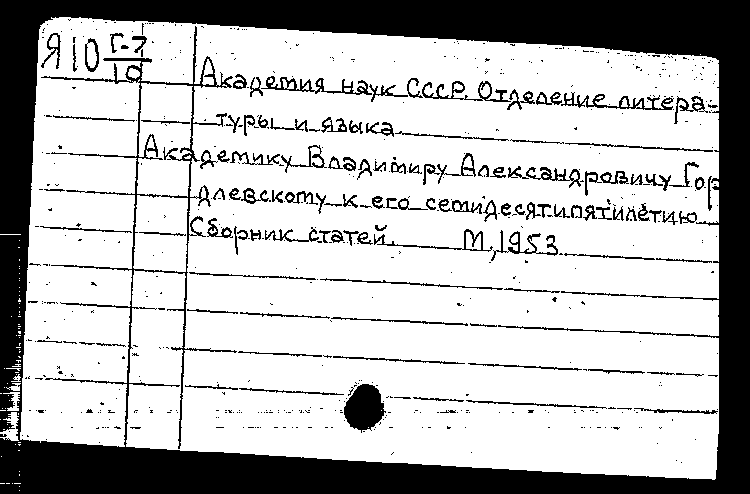 Я10 Г-7
10
Академия наук СССР. Отделение литера-
туры и языка
Академику Владимиру Александровичу Гор
длевскому к его семидесятипятилетию
Сборник статей. М, 1953